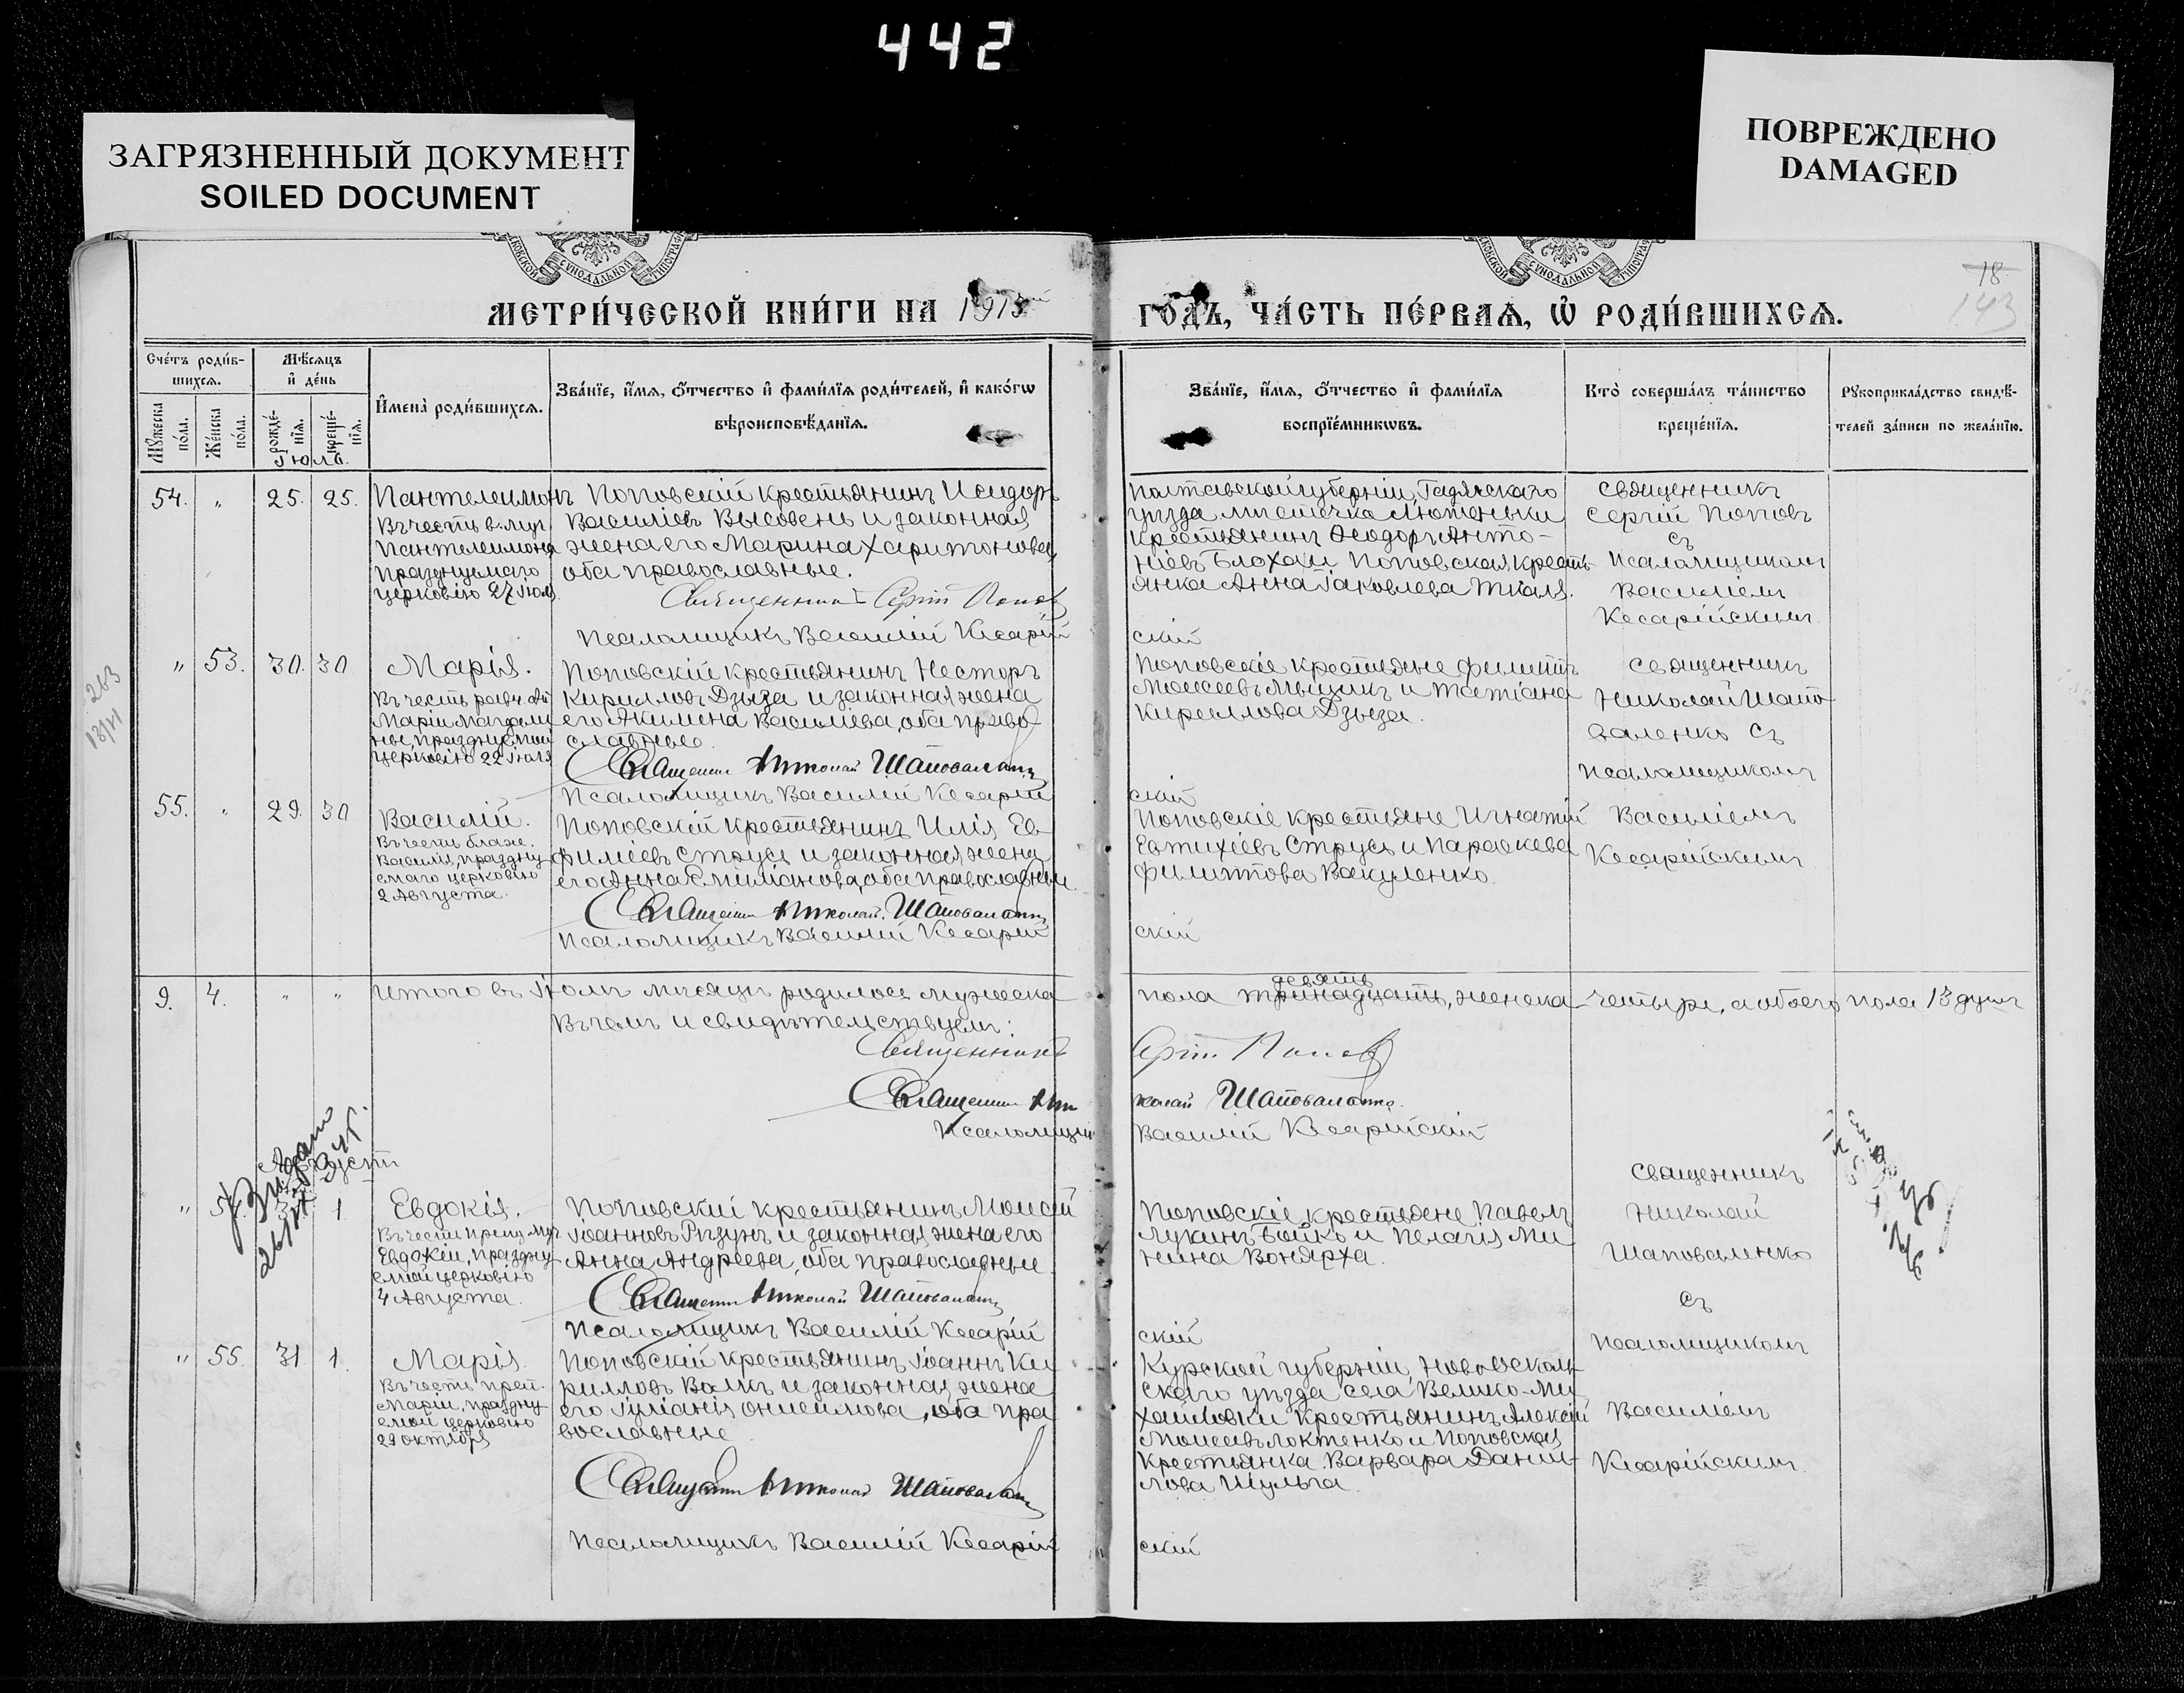 442
ЗАГРЯЗНЕННЫЙ ДОКУМЕНТ
SOILED DOCUMENT
ПОВРЕЖДЕНО
DAMAGED
18
143
МЕТРИ́ЧЕСКОЙ КНИ́ГИ НА 1915
ГОДЪ, ЧА́СТЬ ПЕ́РВАѦ, Ѡ҆ РОДИ́ВШИХСѦ.
Сче́тъ роди́в-
шихсѧ.
Мѣ́сѧцъ
и҆ де́нь
И҆мена̀ роди́вшихсѧ.
Зва́нїе, и҆́мѧ, ѻ҆́тчество и҆ фами́лїѧ роди́телей, и҆ како́гѡ
вѣроисповѣ́данїѧ.
Мꙋ́жеска
по́ла.
Же́нска
по́ла.
рожде́-
нїѧ.
креще́-
нїѧ.
Іюль.
Зва́нїе, и҆́мѧ, ѻ҆́тчество и҆ фами́лїѧ
воспрїе́мникѡвъ.
Кто̀ соверша́лъ та́инство
креще́нїѧ.
Рꙋкоприкла́дство свидѣ́-
телей за́писи по жела́нїю.
54. " 25. 25. Пантелеимонъ
Въ честь в.муч.
Пантелеимона
празднуемаго
церковію 27 Іюля
Поповскій крестьянинъ Исидоръ
Василіевъ Высовень и законная
жена его Марина Харитонова,
оба православные.
Священникъ Сергій Поповъ
Псаломщикъ Василій Кесарій
скій
Полтавской губерніи, Гадячскаго
уѣзда мѣстечка Лютеньки
крестьянинъ Ѳеодоръ Анто-
ніевъ Блохаи Поповская кресть
янка Анна Іаковлева Ткаля.
Священникъ
Сергій Поповъ
съ
Псаломщикомъ
Василіемъ
Кесарійскимъ.
" 53. 30. 30 Марія.
Въ честь равн. ап.
Маріи Магдали
ны, празднуемой
церковію 22 Іюля
Поповскій крестьянинъ Несторъ
Кирилловъ Дзыза и законная жена
его Акилина Василіева, оба право-
славные
Священникъ Николай Шаповаленко
Псаломщикъ Василій Кесарій
скій
Поповскіе крестьяне Филиппъ
Моисеевъ Мыщикъ и Татіана
Кириллова Дзыза.
Священникъ
Николай Шапо-
валенко съ
Псаломщикомъ
Василіемъ
Кесарійскимъ
55. " 29. 30 Василій.
Въ честь блаж.
Василія, праздну
емаго церковію
2 Августа.
Поповскій крестьянинъ Илія Ев-
фиміевъ Струсь и законная жена
его Анна Емиліанова, оба православные.
Священникъ Николай Шаповаленко
Псаломщикъ Василій Кесарій
скій
Поповскіе крестьяне Игнатій
Евтихіевъ Струсь и Параскева
Филиппова Вакуленко.
9. 4. " " Итого въ Іюлѣ мѣсяцѣ родилось мужеска
пола тринадцать, женска четыре, а обоего пола 13 душъ
девять
Въ чемъ и свидѣтельствуемъ:
Священникъ Сергій Поповъ
Священникъ Николай Шаповаленко.
Псаломщикъ Василій Кесарійскій
263
Августъ
" 54. 1 Евдокія.
Въ честь препод. муч.
Евдокіи, праздну
емой церковію
4 Августа.
Поповскій крестьянинъ Моисей
Іоанновъ Рѣзунъ и законная жена его
Анна Андреева, оба православные
Священникъ Николай Шаповаленко
Псаломщикъ Василій Кесарій
скій
Поповскіе крестьяне Павелъ
Лукинъ Бойко и Пелагія Ми-
нина Вонярха.
Священникъ
Николай
Шаповаленко
съ
Псаломщикомъ
Василіемъ
Кесарійскимъ
" 55. 31 1. Марія.
Въ честь преп.
Маріи, праздну
емой церковію
29 октября
Поповскій крестьянинъ Іоаннъ Ки-
рилловъ Валкъ и законная жена
его Іуліанія Онисимова, оба пра
вославные
Священникъ Николай Шаповаленко
Псаломщикъ Василій Кесарій
скій
Курской губерніи, Новооскаль-
скаго уѣзда села Велико-Ми
хайловки крестьянинъ Алексій
Моисеевъ Локтенко и Поповская
крестьянка Варвара Дании-
лова Шульга.